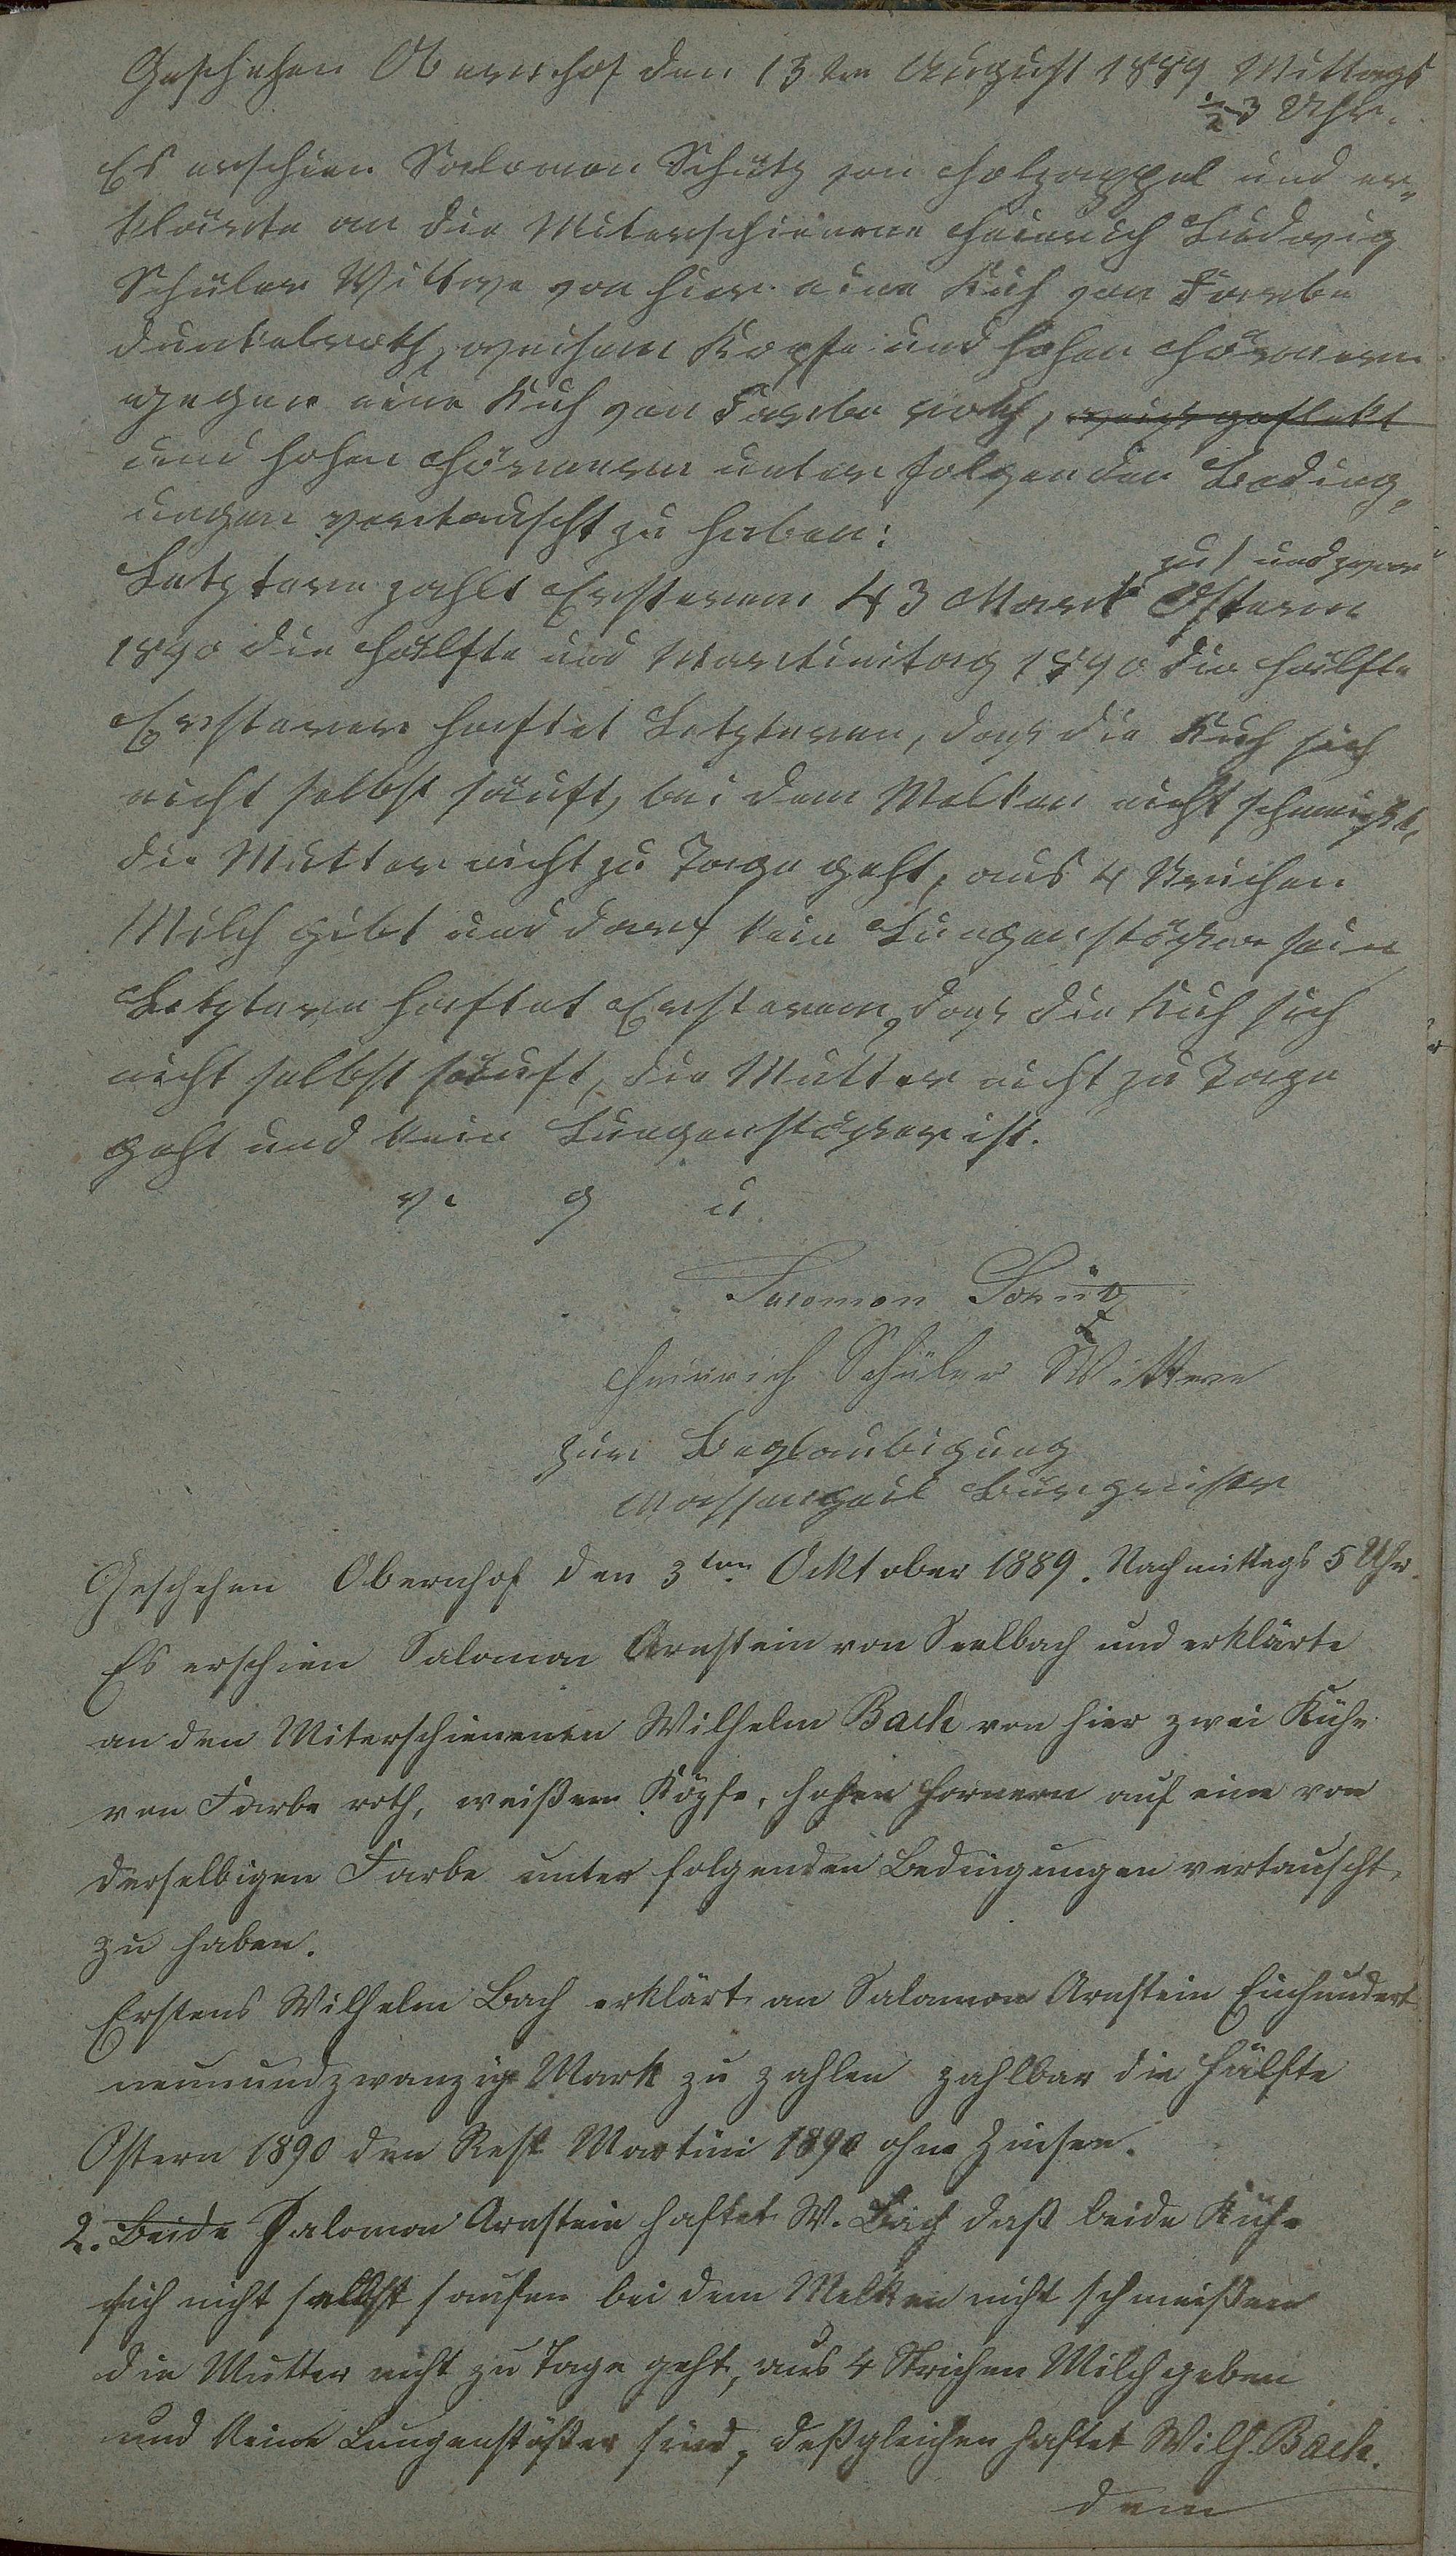 Geschehen Obernhof den 13ten August 1889 Mittags
½3 Uhr.
Es erschien Salomon Schütz von Holzappel und er-
klärte an die Miterschienene Heinrich Ludwig
Schüler Wittwe von hier eine Kuh von Farbe
dunkelroth, weisem Kopfe und hohen Hörnern
gegen eine Kuh von Farbe roth, weis geflekt
und hohen Hörnern unter folgenden Beding-
ungen vertauscht zu haben:
zu/ und zwar
Letztere zahlt Ersterem 43 Mark Ostern
1890 die Hälfte und Martinitag 1890 die Hälfte
Ersterer haftet Letzteren, das die Kuh sich
nicht selbst säuft, bei dem Melken nicht schmeißt,
die Mutter nicht zu Tage geht, aus 4 Strichen
Milch gibt und darf kein Lungenstößer sein
Letztere haftet Ersterem, das die Kuh sich
nicht selbst säuft, die Mutter nicht zu Tage
geht und kein Lungenstößer ist.
v. g u.
Salomon Schütz
Heinrich Schüler Wittwe
zur Beglaubigung
Massengeil Bürgmeister
Geschehen Obernhof den 3ten Ocktober 1889. Nachmittags 5 Uhr.
Es erschien Salomon Arnstein von Seelbach und erklärte
an den Miterschienenen Wilhelm Bach von hier zwei Kühe
von Farbe roth, weißem Köpfe, hohen Hornern auf eine von
derselbigen Farbe unter folgenden Bedingungen vertauscht
zu haben.
Erstens Wilhelm Bach erklärt an Salamon Arnstein Einhundert
neunundzwanzig Mark zu zahlen zahlbar die Hälfte
Ostern 1890 den Rest Martini 1890 ohne Zinsen.
2. Beide Salomon Arnstein haftet W. Bach daß beide Kühe
sich nicht selbst saufen bei dem Melken nicht schmeißen
die Mutter nicht zu Tage geht, aus 4 Strichen Milch geben
und keine Lungenstößer sind, deßgleichen haftet Wilh. Bach.
dem